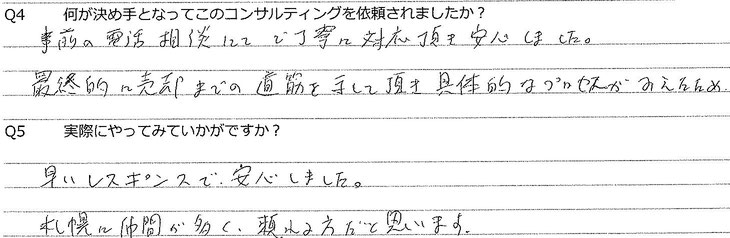 Q4 何が決め手となってこのコンサルティングを依頼されましたか？
事前の電話相談にてご丁寧に対応頂き安心しました。
最終的に売却までの道筋を示して頂き具体的なプロセスがみえたため。
Q5 実際にやってみていかがですか？
早いレスポンスで、安心しました。
札幌に仲間が多く、頼れる方だと思います。